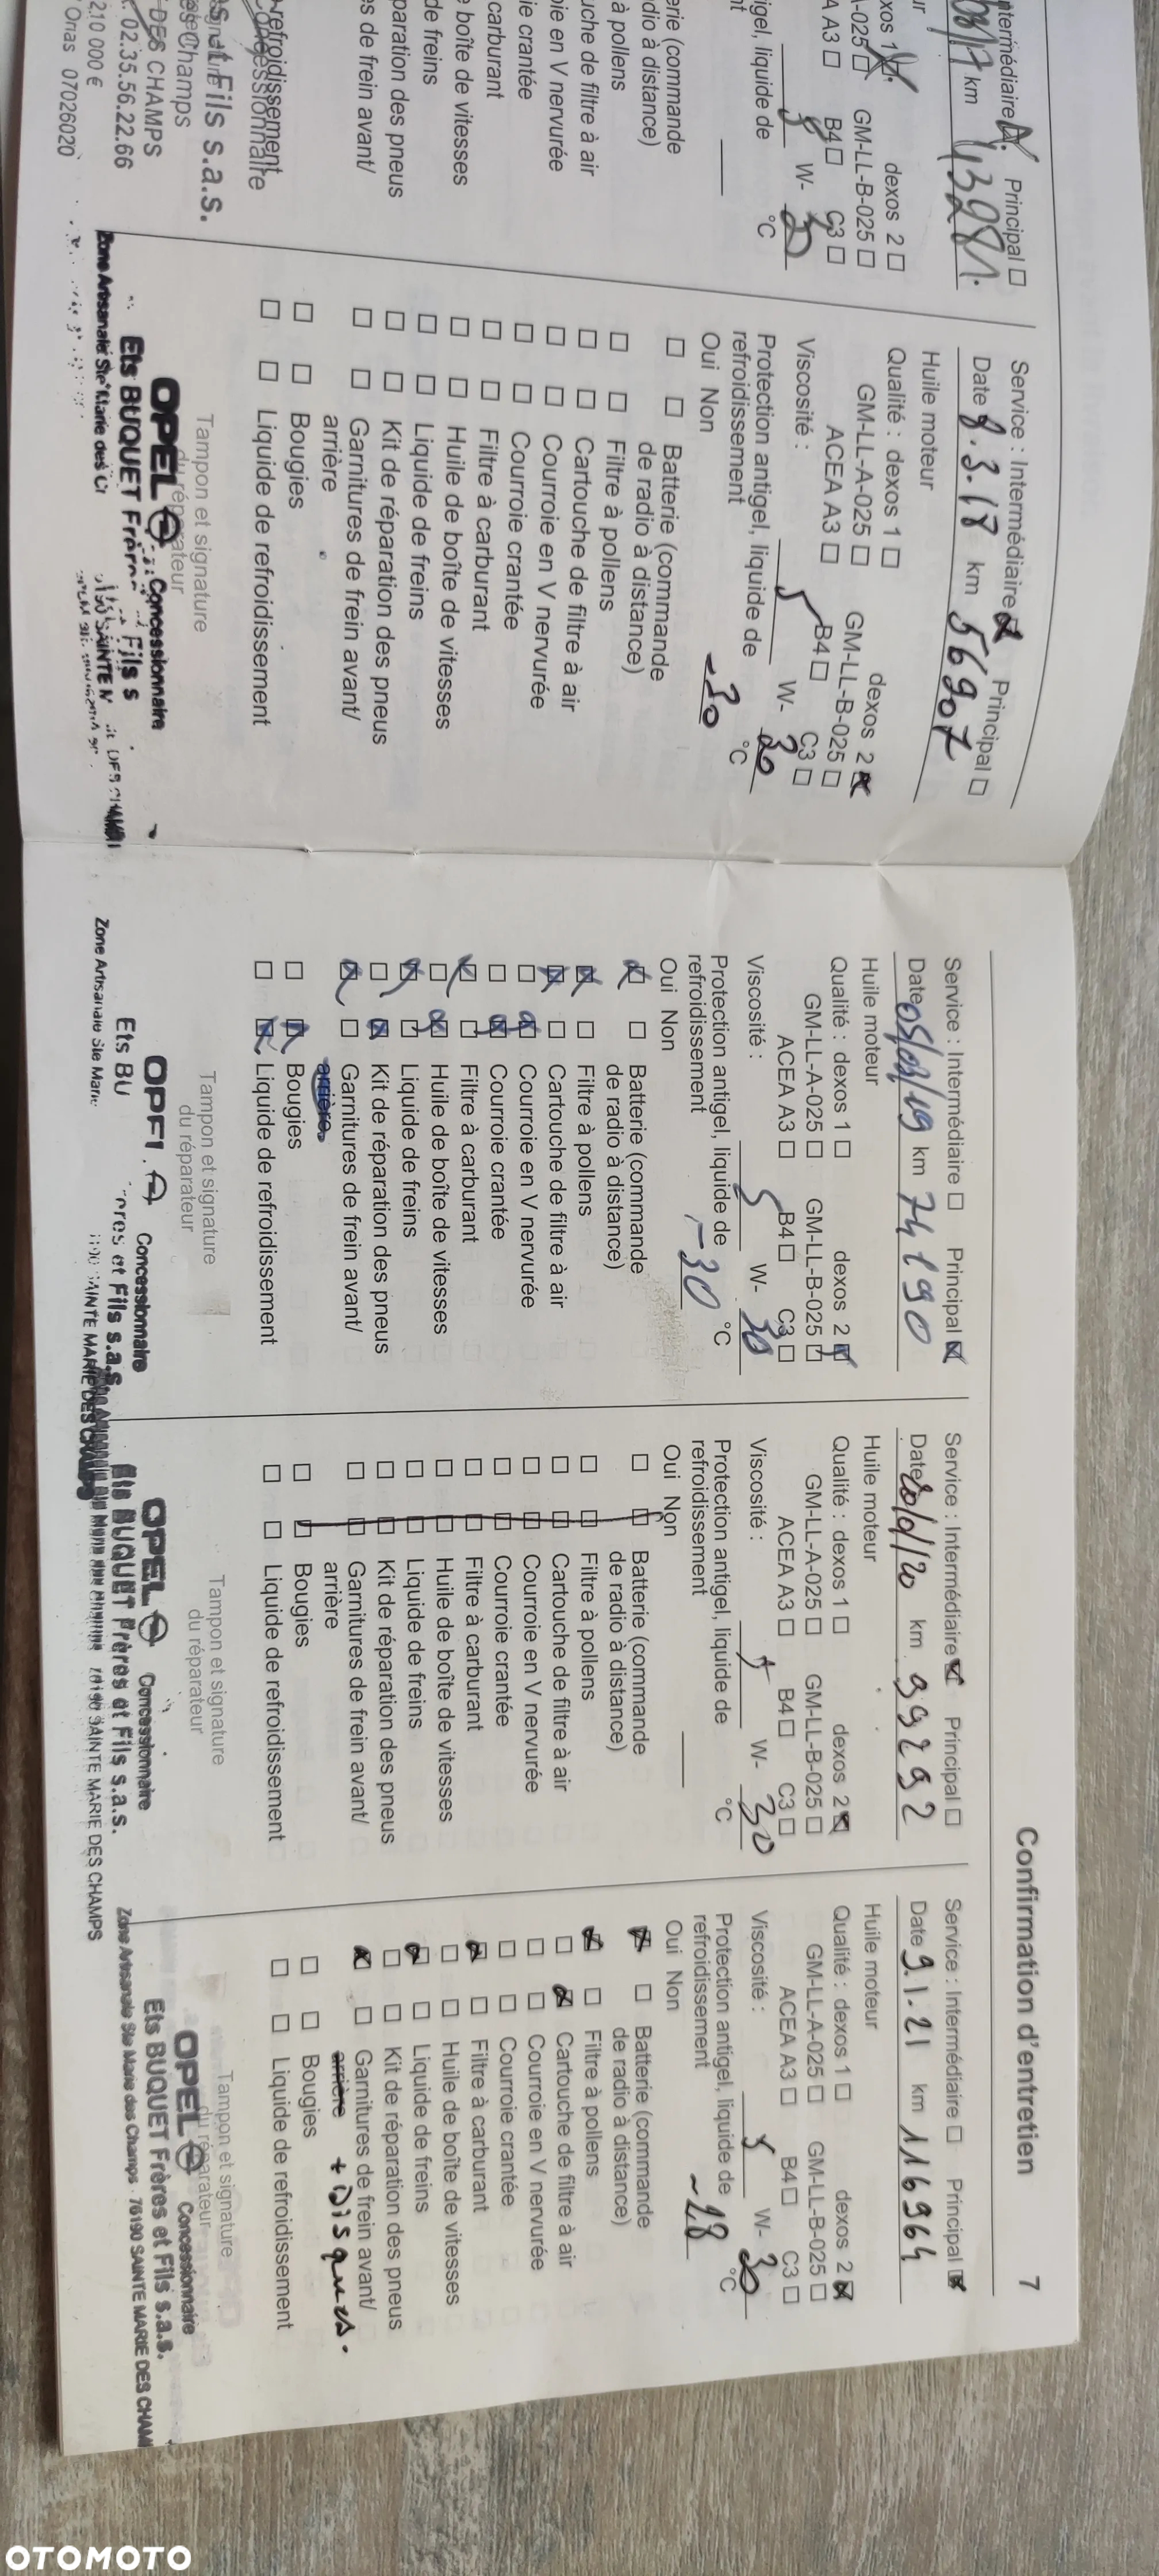 Confirmation d'entretien 7
Intermédiaire Principal □
km
dexos 2 □
A-025 □ GM-LL-B-025 □
A A3 □ B4 □ C3 □
5 W-
liquide de
°C
erie (commande
dio à distance)
à pollens
uche de filtre à air
ie en V nervurée
ie crantée
carburant
boîte de vitesses
de freins
paration des pneus
s de frein avant/
refroidissement
Concessionnaire
et Fils s.a.s.
DES CHAMPS
02.35.56.22.66
210 000 €
07026020
Service : Intermédiaire Principal □
Date 8.3.18 km 56907
Huile moteur
Qualité : dexos 1 □ dexos 2
GM-LL-A-025 □ GM-LL-B-025 □
ACEA A3 □ B4 □ C3 □
Viscosité : 5 W- 30
Protection antigel, liquide de
refroidissement -30 °C
Oui Non
□ □ Batterie (commande
de radio à distance)
□ □ Filtre à pollens
□ □ Cartouche de filtre à air
□ □ Courroie en V nervurée
□ □ Courroie crantée
□ □ Filtre à carburant
□ □ Huile de boîte de vitesses
□ □ Liquide de freins
□ □ Kit de réparation des pneus
□ □ Garnitures de frein avant/
arrière
□ □ Bougies
□ □ Liquide de refroidissement
Tampon et signature
du réparateur
OPEL Concessionnaire
Ets BUQUET Frères et Fils s
Zone Artisanale Ste Marie des
Service : Intermédiaire □ Principal
Date 05/03/19 km 74190
Huile moteur
Qualité : dexos 1 □ dexos 2
GM-LL-A-025 □ GM-LL-B-025 □
ACEA A3 □ B4 □ C3 □
Viscosité : 5 W- 30
Protection antigel, liquide de
refroidissement -30 °C
Oui Non
Batterie (commande
de radio à distance)
Filtre à pollens
Cartouche de filtre à air
Courroie en V nervurée
Courroie crantée
Filtre à carburant
Huile de boîte de vitesses
Liquide de freins
Kit de réparation des pneus
Garnitures de frein avant/
arrière
Bougies
Liquide de refroidissement
Tampon et signature
du réparateur
Concessionnaire
Ets BU res et Fils s.a.s.
Zone Artisanale Ste Marie SAINTE MARIE DES CHAMPS
Service : Intermédiaire Principal □
Date km 99292
Huile moteur
Qualité : dexos 1 □ dexos 2
GM-LL-A-025 □ GM-LL-B-025 □
ACEA A3 □ B4 □ C3 □
Viscosité : 5 W- 30
Protection antigel, liquide de
refroidissement °C
Oui Non
□ □ Batterie (commande
de radio à distance)
□ □ Filtre à pollens
□ □ Cartouche de filtre à air
□ □ Courroie en V nervurée
□ □ Courroie crantée
□ □ Filtre à carburant
□ □ Huile de boîte de vitesses
□ □ Liquide de freins
□ □ Kit de réparation des pneus
□ □ Garnitures de frein avant/
arrière
□ □ Bougies
□ □ Liquide de refroidissement
Tampon et signature
du réparateur
OPEL Concessionnaire
Ets BUQUET Frères et Fils s.a.s.
76190 SAINTE MARIE DES CHAMPS
Service : Intermédiaire □ Principal
Date 9.1.21 km 116964
Huile moteur
Qualité : dexos 1 □ dexos 2
GM-LL-A-025 □ GM-LL-B-025 □
ACEA A3 □ B4 □ C3 □
Viscosité : 5 W- 30
Protection antigel, liquide de
refroidissement -28 °C
Oui Non
Batterie (commande
de radio à distance)
Filtre à pollens
Cartouche de filtre à air
Courroie en V nervurée
Courroie crantée
Filtre à carburant
Huile de boîte de vitesses
Liquide de freins
Kit de réparation des pneus
Garnitures de frein avant/
arrière + Disques.
Bougies
Liquide de refroidissement
Tampon et signature
du réparateur
OPEL Concessionnaire
Ets BUQUET Frères et Fils s.a.s.
Zone Artisanale Ste Marie des Champs - 76190 SAINTE MARIE DES CHAM
OTOMOTO